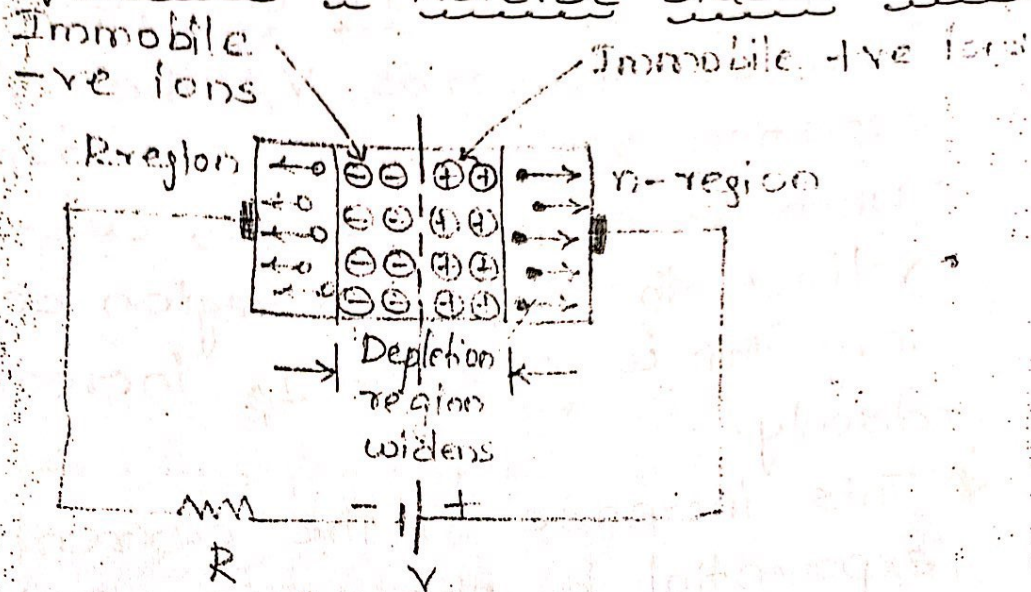 Immobile
-ve ions
Immobile +ve ions
P-region
n-region
Depletion
region
widens
- +
R
V